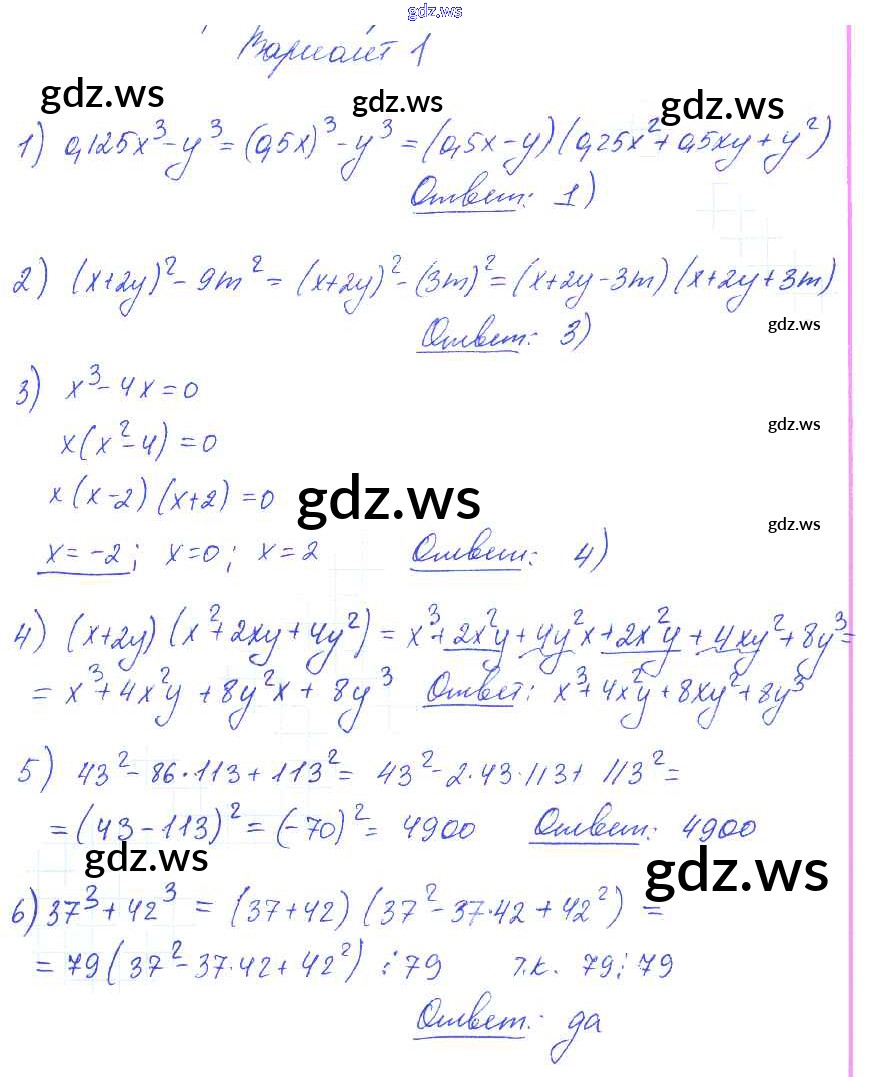 gdz.ws
Вариант 1
gdz.ws gdz.ws gdz.ws
1) 0,125x³ - y³ = (0,5x)³ - y³ = (0,5x - y)(0,25x² + 0,5xy + y²)
Ответ: 1)
2) (x+2y)² - 9m² = (x+2y)² - (3m)² = (x+2y-3m)(x+2y+3m)
Ответ: 3)
gdz.ws
3) x³ - 4x = 0
x(x² - 4) = 0
gdz.ws
x(x-2)(x+2) = 0
gdz.ws
gdz.ws
x = -2; x = 0; x = 2 Ответ: 4)
4) (x+2y)(x² + 2xy + 4y²) = x³ + 2x²y + 4y²x + 2x²y + 4xy² + 8y³ =
= x³ + 4x²y + 8y²x + 8y³ Ответ: x³ + 4x²y + 8xy² + 8y³
5) 43² - 86·113 + 113² = 43² - 2·43·113 + 113² =
= (43 - 113)² = (-70)² = 4900 Ответ: 4900
gdz.ws gdz.ws
6) 37³ + 42³ = (37+42)(37² - 37·42 + 42²) =
= 79(37² - 37·42 + 42²) ⋮ 79 т.к. 79 ⋮ 79
Ответ: да